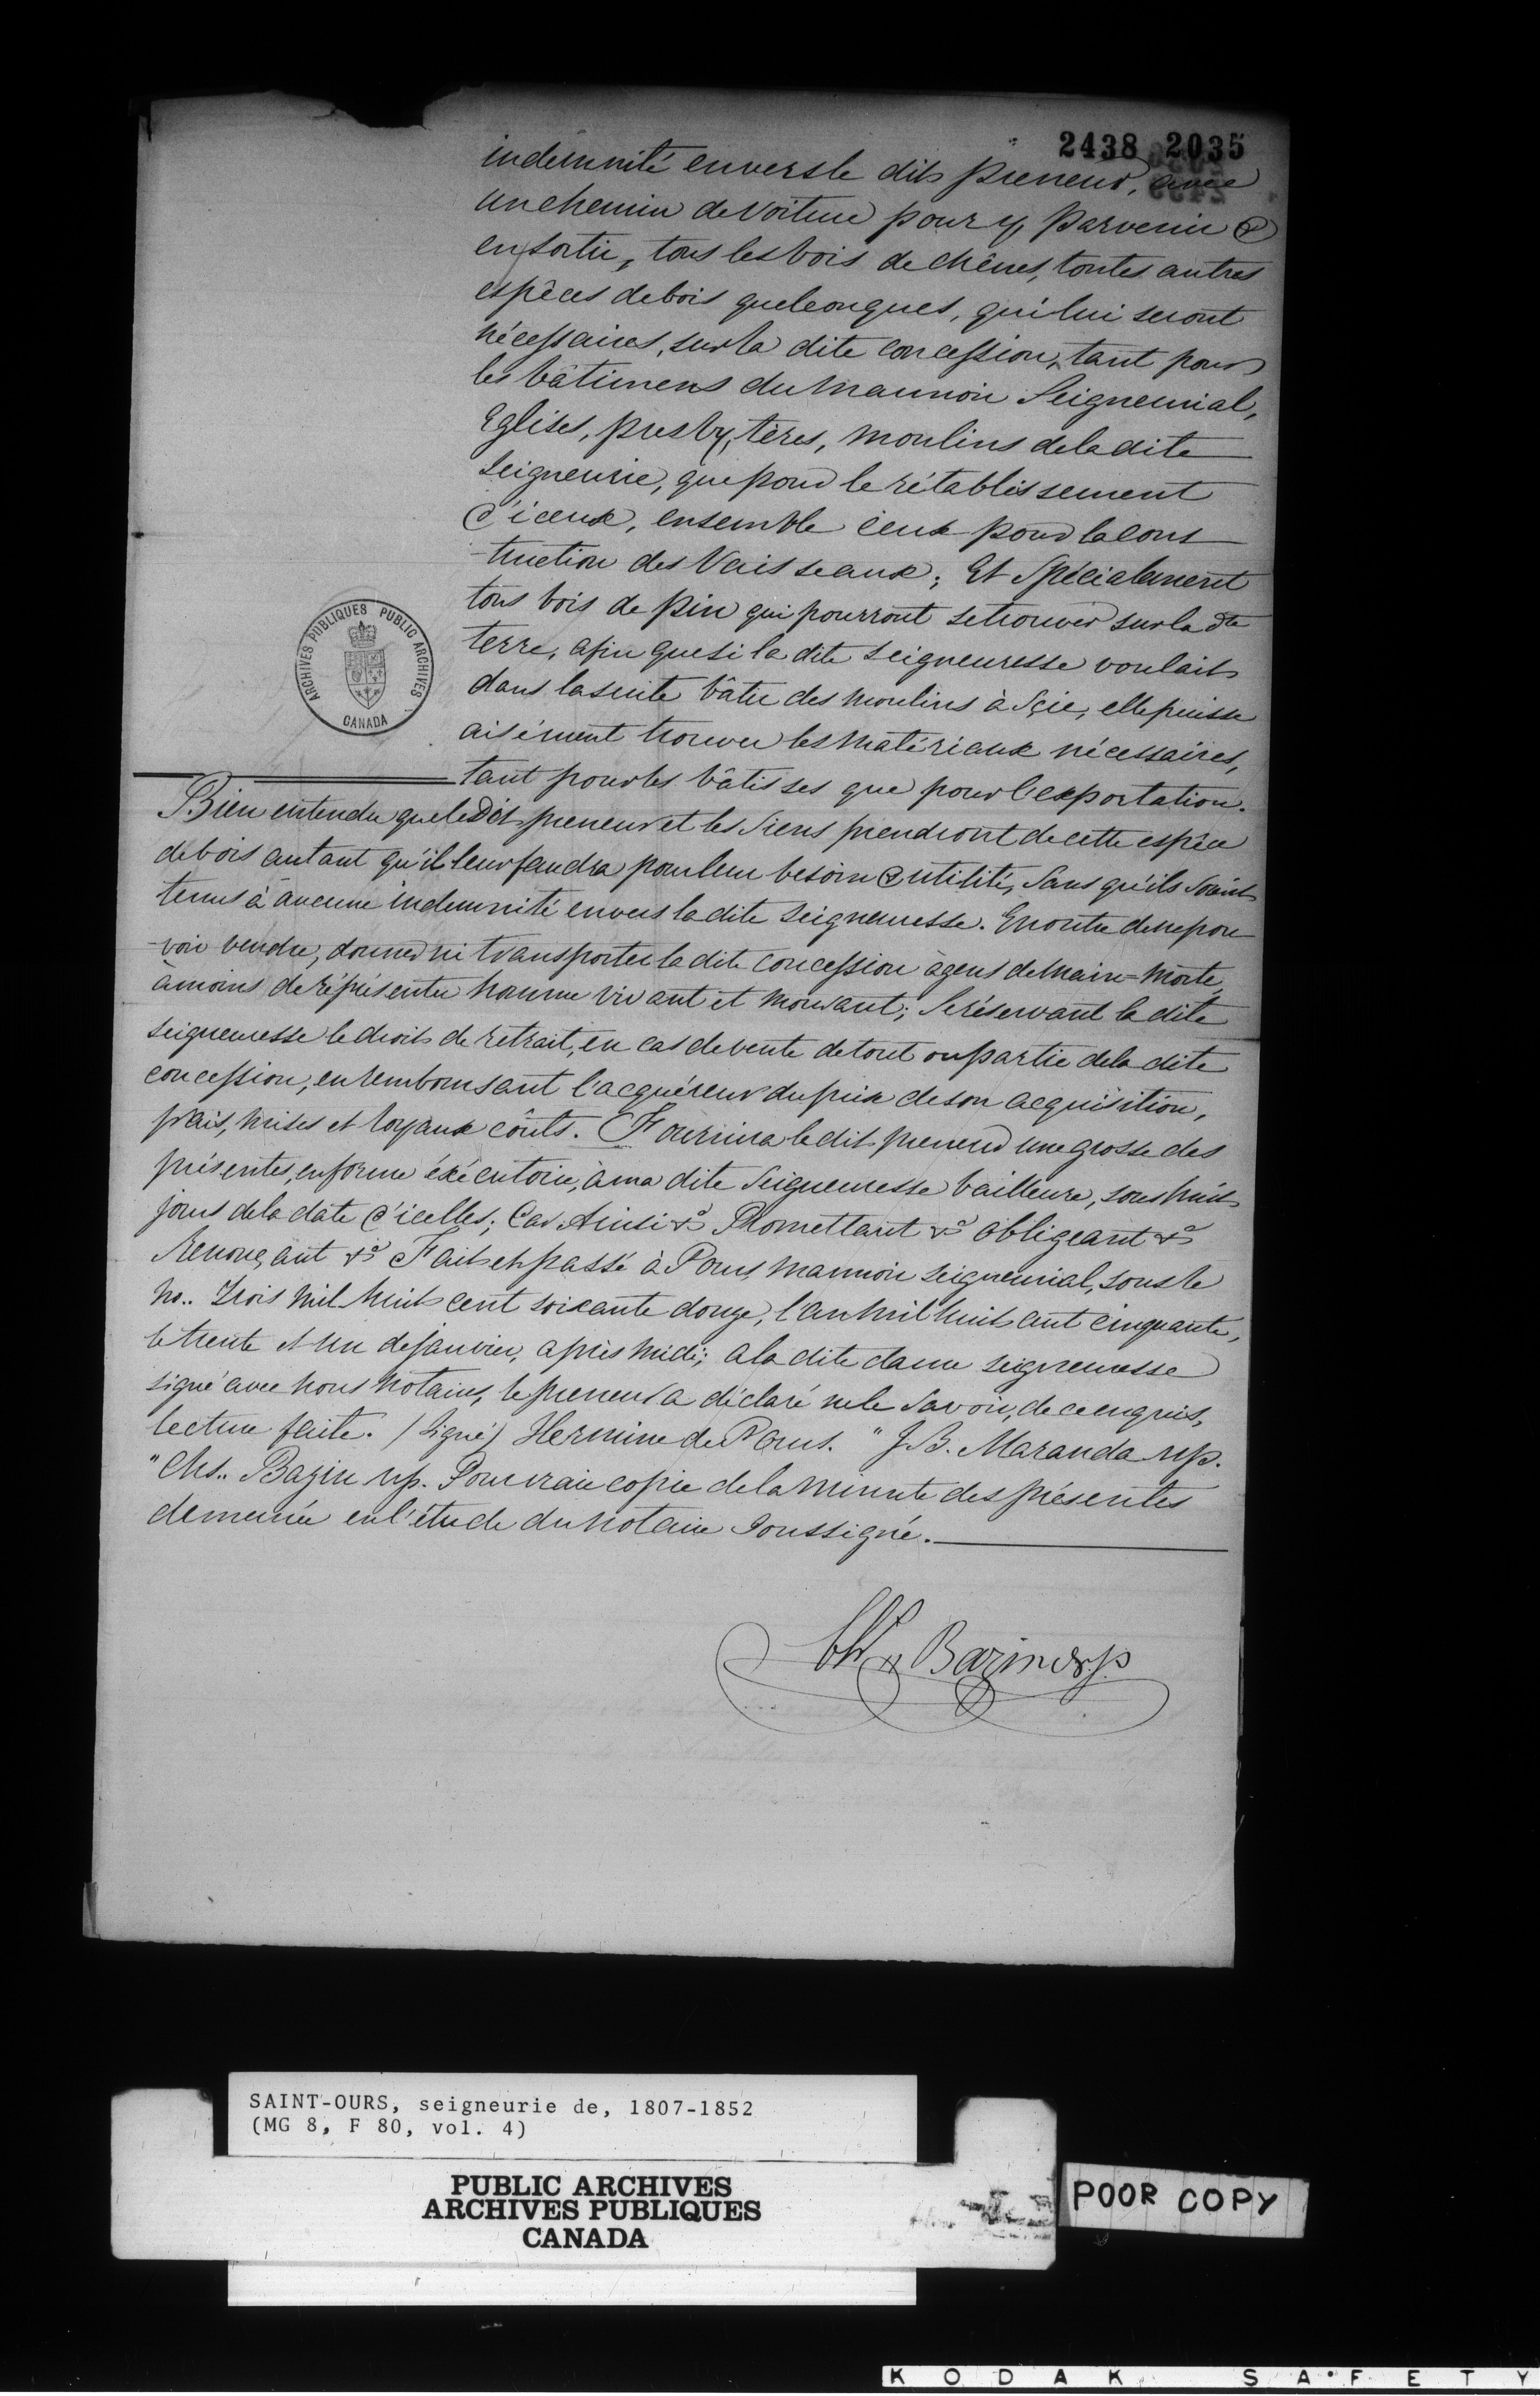 2438 2035
indemnité envers le dit preneur, avec
un chemin de voiture pour y parvenir &
en sortir, tous les bois de chênes, toutes autres
espêces de bois quelconques, qui lui seront
nécessaires, sur la dite concession, tant pour
les bâtimens du mannoir Seigneurial,
Eglises, presbytères, moulins de la dite
Seigneurie, que pour le rétablissement
d'iceux, ensemble ceux pour la cons
-truction des Vaisseaux; Et Spécialement
tous bois de pin qui pourront se trouver sur la dte
terre, afin que si la dite seigneuresse voulait
dans la suite bâtir des moulins à Scie, elle puisse
aisément trouver les matériaux nécessaires,
tant pour les bâtisses que pour l'exportation.
Bien entendu que le Dit preneur et les Siens prendront de cette espêce
de bois autant qu'il leur faudra pour leur besoin & utilité, Sans qu'ils soient
tenus à aucune indemnité envers la dite Seigneuresse. En outre de ne pou
-voir vendre, donner ni transporter la dite concession à gens de main=morte,
à moins de réprésenter homme vivant et mourant; Se réservant la dite
seigneuresse le droit de retrait, en cas de vente de tout ou partie de la dite
concession, en remboursant l'acquéreur du prix de son acquisition,
frais, mises et loyaux coûts. Fournira le dit preneur une grosse des
présentes, en forme éxécutoire, à ma dite Seigneuresse bailleure, sous huit
jours de la date d'icelles; Car Ainsi &a Promettant &a obligeant &a
Renonçant &a Fait et passé à Pours, mannoir seigneurial, sous le
no.. Trois mil huit cent soixante douze, l'an mil huit cent cinquante,
le trente et un de janvier, après midi; a la dite dame seigneuresse
signé avec nous notaires, le preneur a déclaré ne le savoir, de ce enquis,
lecture faite. (Signé) Hermine de Pours. " J.B. Maranda np.
" Chs.. Bazin np. Pour vraie copie de la minute des présentes
demeurée en l'étude du notaire Soussigné.
Chs Bazin n.p
ARCHIVES PUBLIQUES PUBLIC ARCHIVES
CANADA
SAINT-OURS, seigneurie de, 1807-1852
(MG 8, F 80, vol. 4)
PUBLIC ARCHIVES
ARCHIVES PUBLIQUES
CANADA
POOR COPY
KODAK SAFETY